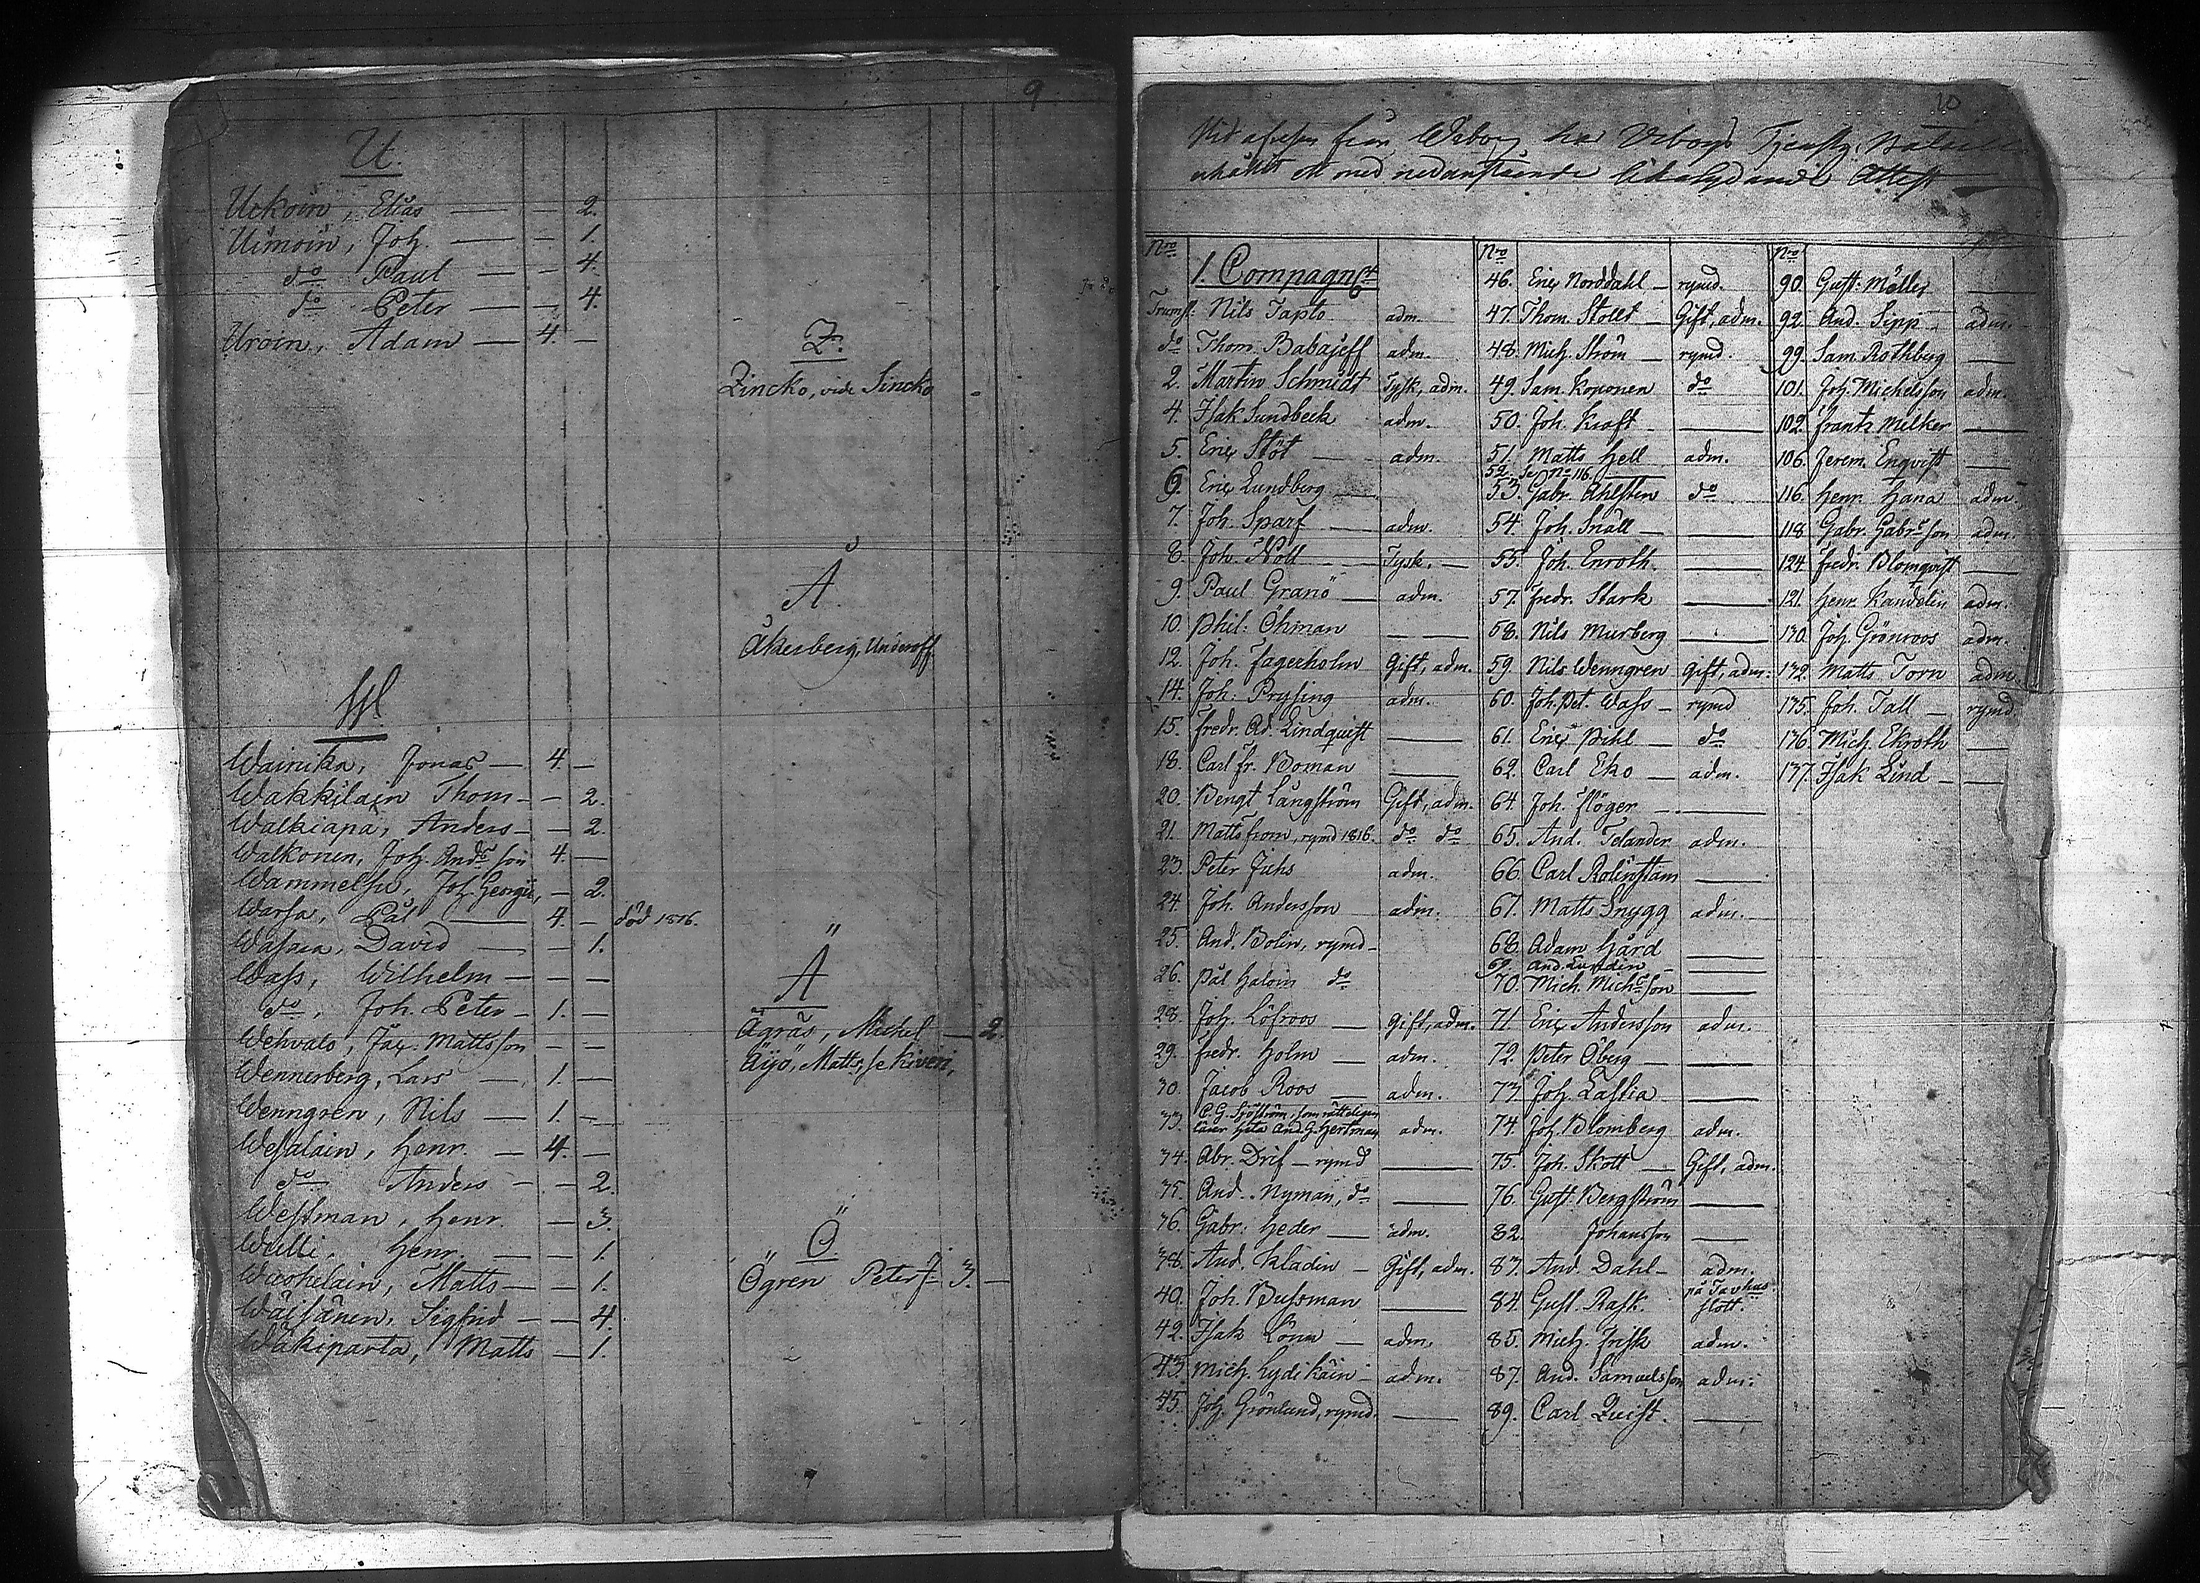 9
U.
Uckoin, Elias — — 2.
Uimoin, Joh. — — 1.
do Paul — — 4.
do Peter — — 4.
Uroin, Adam — 4. —
W
Wainika, Jonas — 4. —
Wakkilain Thom — — 2.
Walkiapä, Anders — — 2.
Walkonen, Joh. Andsson 4. —
Wammelsu, Joh. Georgii, — 2.
Warsa, Pål — 4. — död 1816.
Wasara, David — — 1.
Wass, Wilhelm — — —
do, Joh. Peter — 1. —
Wehvalo, Jac. Mattsson — —
Wennerberg, Lars — 1. —
Wenngren, Nils — 1. —
Wesalain, Henr. — 4. —
do Anders — — 2.
Westman, Henr. — 3.
Willi, Henr. — — 1.
Wuohelain, Matts — — 1.
Wäisänen, Sigfrid — — 4.
Wäkiparta, Matts — 1.
Z.
Zincko, vide Sincko
Å
Åkerberg, Underoff
Ä
Ägräs, Michel — 2.
Äijö, Matts, se Kiveri,
Ö
Ögren Peter — 3. —
10
Vid afresan från Wiborg har Wiborgs
erhållit ett med nedanstående likalydande Attest
Nro 1. Compagnet
Trumsl: Nils Taplo adm.
do Thom. Babajeff adm.
2. Martin Schmidt Tysk, adm.
4. Isak Sundbeck adm.
5. Eric Stöt — adm.
6. Eric Lundberg —
7. Joh. Sparf — adm.
8. Joh. Noll — Tysk. —
9. Paul Granö — adm.
10. Phil: Öhman — —
12. Joh. Fagerholm Gift, adm.
14. Joh. Prysing adm.
15. Fredr. Ad. Lindquist —
18. Carl Fr. Boman —
20. Bengt Långström Gift, adm.
21. Matts From, rymd 1816. do do
23. Peter Juhs adm.
24. Joh. Andersson adm.
25. And. Bolin, rymd —
26. Pål Haloin do
28. Joh. Löfroos — Gift, adm.
29. Fredr. Holm — adm.
30. Jacob Roos — adm.
33. C. G. Sjöström, som rätteligen
lärer heta And. G. Hertman adm.
34. Abr. Drif — rymd —
35. And. Nyman, do —
36. Gabr. Heder — adm.
38. And. Kladin — Gift, adm.
40. Joh. Bussman —
42. Isak Lönn — adm.
43. Mich. Hydikäin — adm.
45. Joh. Grönlund, rymd. —
Nro
46. Eric Norddahl — rymd.
47. Thom. Stolt — Gift, adm.
48. Mich. Ström — rymd.
49. Sam. Koponen do
50. Joh. Kraft — —
51. Matts Hell adm.
52. Se No 116 —
53. Gabr. Ahlsten do
54. Joh. Snäll — —
55. Joh. Enroth. —
57. Fredr. Stark —
58. Nils Murberg —
59. Nils Wenngren Gift, adm.
60. Joh. Pet. Wass — rymd
61. Eric Pihl — do
62. Carl Eko — adm.
64. Joh. Flöger — —
65. And. Telander adm.
66. Carl Rolinstam —
67. Matts Snygg adm.
68. Adam Hård —
69. And. Lundin —
70. Mich. Michsson —
71. Eric Andersson adm.
72. Peter Öberg — —
73. Joh. Lastia —
74. Joh. Blomberg adm.
75. Joh. Skott — Gift, adm.
76. Gust. Bergström —
82. Johansson —
83. And. Dahl — adm.
84. Gust. Rask på Tavhus
slott.
85. Mich. Frisk adm.
87. And. Samuelsson adm.
89. Carl Quist. —
Nro
90. Gust. Möller —
92. And. Sipp — adm.
99. Sam. Rothberg —
101. Joh. Michelsson adm.
102. Frantz Melker —
106. Jerem. Enqvist —
116. Henr. Hana adm.
118. Gabr. Gabrsson adm.
124. Fredr. Blomqvist —
121. Henr. Kandelin adm.
130. Joh. Grönroos adm.
132. Matts Torn adm.
135. Joh. Tall — rymd
136. Mich. Ekroth —
137. Isak Lind — —